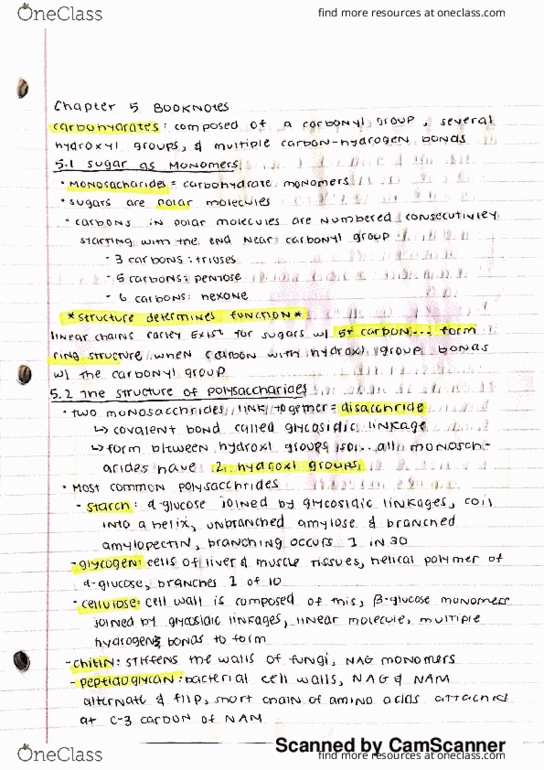 OneClass
find more resources at oneclass.com
Chapter 5 BOOKNOTES
carbohydrates: composed of a carbonyl group, several
hydroxyl groups, & multiple carbon-hydrogen bonds
5.1 sugar as Monomers
• Monosacharides = carbohydrate monomers
• sugars are polar molecules
• carbons in polar molecules are numbered consecutivley
starting with the end near carbonyl group
• 3 carbons: trioses
• 5 carbons: pentose
• 6 carbons: hexone
*structure determines function*
linear chains rarley exist for sugars w/ 5+ carbon... form
ring structure when carbon with hydroxl group bonds
w/ the carbonyl group
5.2 The structure of polysaccharides
• two monosacchrides link together = disacchride
↳ covalent bond called glycosidic linkage
↳ form between hydroxl groups so... all monosch-
arides have 2 hydroxl groups
• Most common polysacchrides
- starch: α-glucose joined by glycosidic linkages, coil
into a helix, unbranched amylose & branched
amylopectin, branching occurs 1 in 30
- glycogen: cells of liver & muscle tissues, helical polymer of
α-glucose, branches 1 of 10
- cellulose: cell wall is composed of this, β-glucose monomers
joined by glycosidic linkages, linear molecule, multiple
hydrogens bonds to form
- chitin: stiffens the walls of fungi, NAG monomers
- peptidoglycan: bacterial cell walls, NAG & NAM
alternate & flip, short chain of amino acids attatched
at C-3 carbon of NAM
Scanned by CamScanner
OneClass
find more resources at oneclass.com